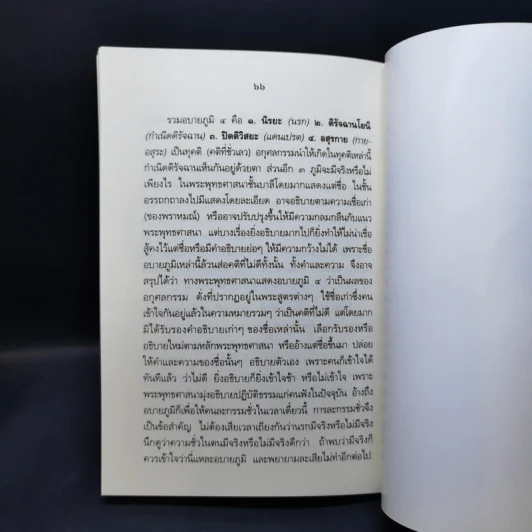 ๖๖
รวมอบายภูมิ ๔ คือ ๑. นิรยะ (นรก) ๒. ติรัจฉานโยนิ
(กำเนิดดิรัจฉาน) ๓. ปิตติวิสยะ (แดนเปรต) ๔. อสุรกาย (กาย-
อสุระ) เป็นทุคติ (คติที่ชั่วเลว) อกุศลกรรมนำให้เกิดในทุคติเหล่านี้
กำเนิดดิรัจฉานเห็นกันอยู่ด้วยตา ส่วนอีก ๓ ภูมิจะมีจริงหรือไม่
เพียงไร ในพระพุทธศาสนาชั้นบาลีโดยมากแสดงแต่ชื่อ ในชั้น
อรรถกถาลงไปมีแสดงโดยละเอียด อาจอธิบายตามความเชื่อเก่า
(ของพราหมณ์) หรืออาจปรับปรุงขึ้นให้มีความกลมกลืนกับแนว
พระพุทธศาสนา แต่บางเรื่องยิ่งอธิบายมากไปก็ยิ่งทำให้ไม่น่าเชื่อ
สู้คงไว้แต่ชื่อหรือมีคำอธิบายย่อๆ ให้มีความกว้างไม่ได้ เพราะชื่อ
อบายภูมิเหล่านี้ล้วนส่อคติที่ไม่ดีทั้งนั้น ทั้งคำและความ จึงอาจ
สรุปได้ว่า ทางพระพุทธศาสนาแสดงอบายภูมิ ๔ ว่าเป็นผลของ
อกุศลกรรม ดั่งที่ปรากฏอยู่ในพระสูตรต่างๆ ใช้ชื่อเก่าซึ่งคน
เข้าใจกันอยู่แล้วในความหมายรวมๆ ว่าเป็นคติที่ไม่ดี แต่โดยมาก
มิได้รับรองคำอธิบายเก่าๆ ของชื่อเหล่านั้น เลือกรับรองหรือ
อธิบายใหม่ตามหลักพระพุทธศาสนา หรืออ้างแต่ชื่อขึ้นมา ปล่อย
ให้คำและความของชื่อนั้นๆ อธิบายตัวเอง เพราะคนก็เข้าใจได้
ทันทีแล้ว ว่าไม่ดี ยิ่งอธิบายก็ยิ่งเข้าใจช้า หรือไม่เข้าใจ เพราะ
พระพุทธศาสนามุ่งอธิบายปฏิบัติธรรมแก่คนฟังในปัจจุบัน อ้างถึง
อบายภูมิก็เพื่อให้คนละกรรมชั่วในเวลาเดี๋ยวนี้ การละกรรมชั่วจึง
เป็นข้อสำคัญ ไม่ต้องเสียเวลาเถียงกันว่านรกมีจริงหรือไม่มีจริง
นึกดูว่าความชั่วในตนมีจริงหรือไม่มีจริงดีกว่า ถ้าพบว่ามีจริงก็
ควรเข้าใจว่านี่แหละอบายภูมิ และพยายามละเสียไม่ทำอีกต่อไป.